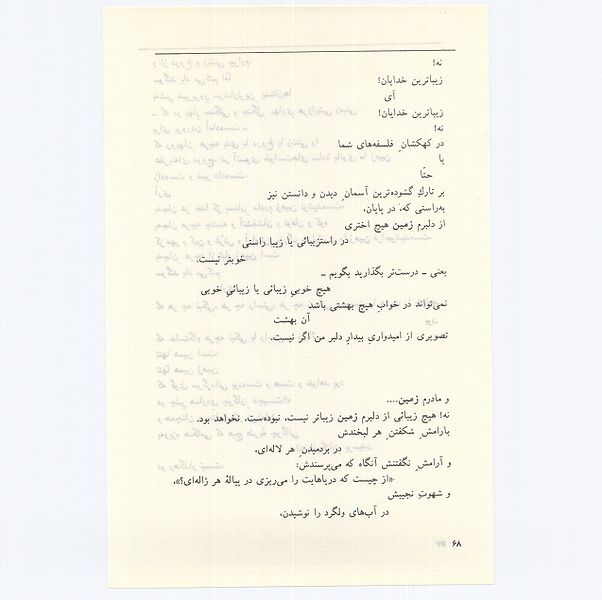 نه!
زیباترین خدایان!
آی
زیباترین خدایان!
نه!
در کهکشانِ فلسفه‌های شما
یا
حتّا
بر تارکِ گشوده‌ترین آسمانِ دیدن و دانستن نیز
به‌راستی که، در پایان،
از دلبرم زمین هیچ اختری
در راستزیبائی یا زیبا راستی
خوبتر نیست.
یعنی ـ درست‌تر بگذارید بگویم ـ
هیچ خوبیِ زیبائی یا زیبائیِ خوبی
نمی‌تواند در خوابِ هیچ بهشتی باشد
آن بهشت
تصویری از امیدواریِ بیدارِ دلبر من اگر نیست.
و مادرم زمین....
نه! هیچ زیبائی از دلبرم زمین زیباتر نیست، نبوده‌ست، نخواهد بود.
بارامشِ شکفتنِ هر لبخندش
در بردمیدنِ هر لاله‌ای،
و آرامشِ نگفتنش آنگاه که می‌پرسندش:
«از چیست که دریاهایت را می‌ریزی در پیالهٔ هر ژاله‌ای؟»،
و شهوتِ نجیبش
در آب‌های ولگرد را نوشیدن،
۶۸